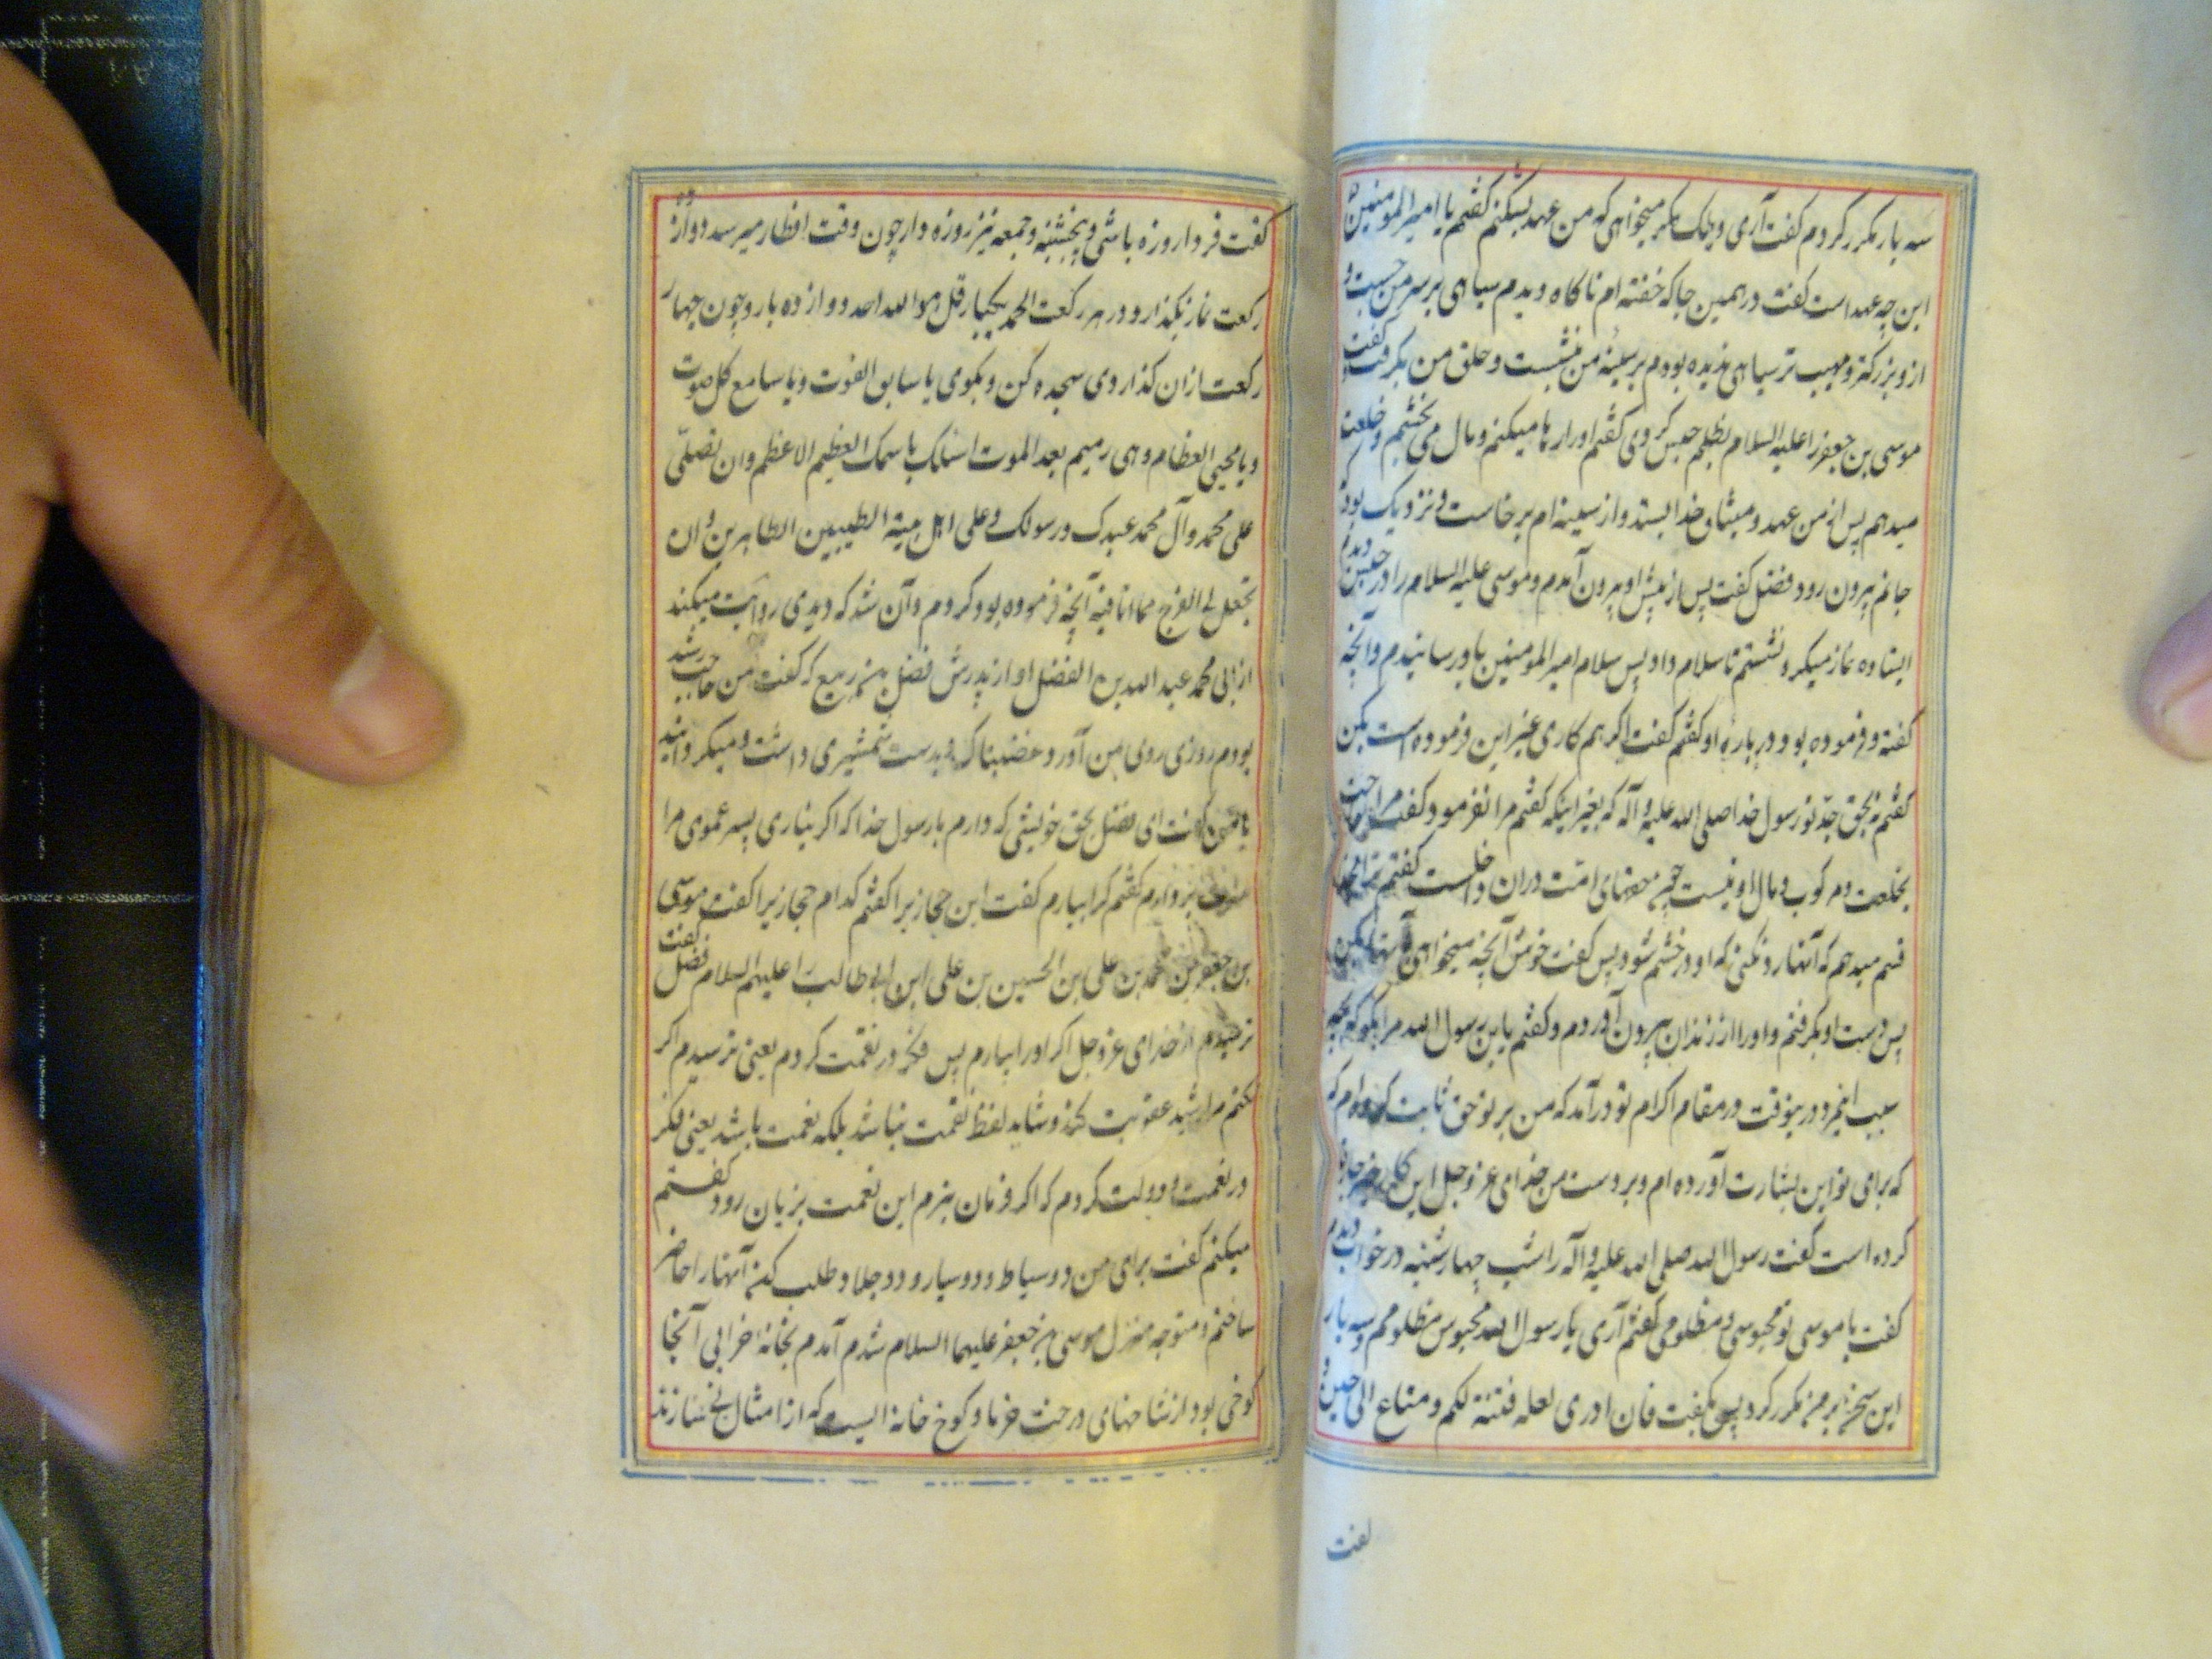 سه بار مکرر کردم گفت آری ویلک مکر میخواهی که من عهد بشکنم گفتم یا امیرالمومنین
این چه عهد است گفت در همین جا که خفته ام ناکاه دیدم سیاهی بر سر من جست و
از و بزرکتر و مهیب تر سیاهی ندیده بودم بر سینهٔ من نشست و حلق من بکرفت و گفت
موسی بن جعفر را علیه السلام بظلم حبس کردی گفتم او را رها میکنم و مال می بخشم و خلعت
میدهم پس از من عهد و میثاق خدا بستد و از سینه ام برخاست و نزدیک بود که
جانم بیرون رود فضل گفت پس از پیش او بیرون آمدم و موسی علیه السلام را در حبس دیدم
ایستاده نماز میکرد نشستم تا سلام داد پس سلام امیر المومنین باو رسانیدم و آنچه
گفته و فرموده بود در بارهٔ او گفتم گفت اکر هم کاری غیر این فرموده است بکن
گفتم نه بحق جد تو رسول خدا صلی الله علیه و آله که بغیر اینکه گفتم مرا نفرمود گفت مرا حاجت
بخلعت و مال او نیست چه حقهای امت دران داخلست گفتم بخدا
قسم میدهم که آنها رد نکنی که او در خشم شود پس گفت خوش آنچه میخواهی بآنها بکن
پس دست او بکرفتم و او را از زندان بیرون آوردم و گفتم یا بن رسول الله مرا بکو که بچه
سبب این مرد درین وقت در مقام اکرام تو درآمد که من بر تو حق ثابت کرده ام که
که برای تو این بشارت آورده ام و بر دست من خدای عز و جل این کار خیر جاری
کرده است گفت رسول الله صلی الله علیه و آله را شب چهارشنبه در خواب دیدم
گفت یا موسی تو محبوسی و مظلومی گفتم آری یا رسول الله محبوس مظلومم و سه بار
این سخن بر من مکرر کرد پس گفت فان ادری لعله فتنة لکم و متاع الی حین
گفت
گفت فردا روزه باشی و پنجشنبه و جمعه نیز روزه دار چون وقت افطار میرسد دوازده
رکعت نماز بگذار و در هر رکعت الحمد یکبار قل هو الله احد دوازده بار و چون چهار
رکعت ازان کذاردی سجده کن و بکوی یا سابق الفوت و یا سامع کل صوت
و یا محیی العظام وهی رمیم بعد الموت اسئلک باسمک العظیم الاعظم و ان تصلی
علی محمد و آل محمد عبدک و رسولک و علی اهل بیته الطیبین الطاهرین و ان
تجعل لی الفرج مما انا فیه آنچه فرموده بود کردم و آن شد که دیدی روایت میکند
از ابی محمد عبد الله بن الفضل او از پدرش فضل بن ربیع که گفت من حاجب رشید
بودم روزی روی بمن آورد غضبناک و بدست شمشیری داشت و میکردانید
گفت ای فضل بحق خویشی که دارم با رسول خدا که اکر نیاری پسر عموی مرا
بردارم گفتم کرا بیارم گفت این حجازیرا گفتم کدام حجازیرا گفت موسی
بن جعفر بن محمد بن علی بن الحسین بن علی ابن ابی طالب را علیهم السلام فضل گفت
ترسیدم از خدای عز و جل اکر او را بیارم پس فکر در نقمت کردم یعنی ترسیدم اکر
نکنم مرا رشید عقوبت کند و شاید لفظ نقمت نباشد بلکه نعمت باشد یعنی فکر
در نعمت و دولت کردم که اکر فرمان نبرم این نعمت بزیان رود گفتم
میکنم گفت برای من دو سیاط و دو سیار و دو جلاد طلب کن آنها را حاضر
ساختم و متوجه منزل موسی بن جعفر علیهما السلام شدم آمدم بخانه خرابی آنجا
کوخی بود از شاخهای درخت خرما و کوخ خانه ایست که از امثال نی سازند